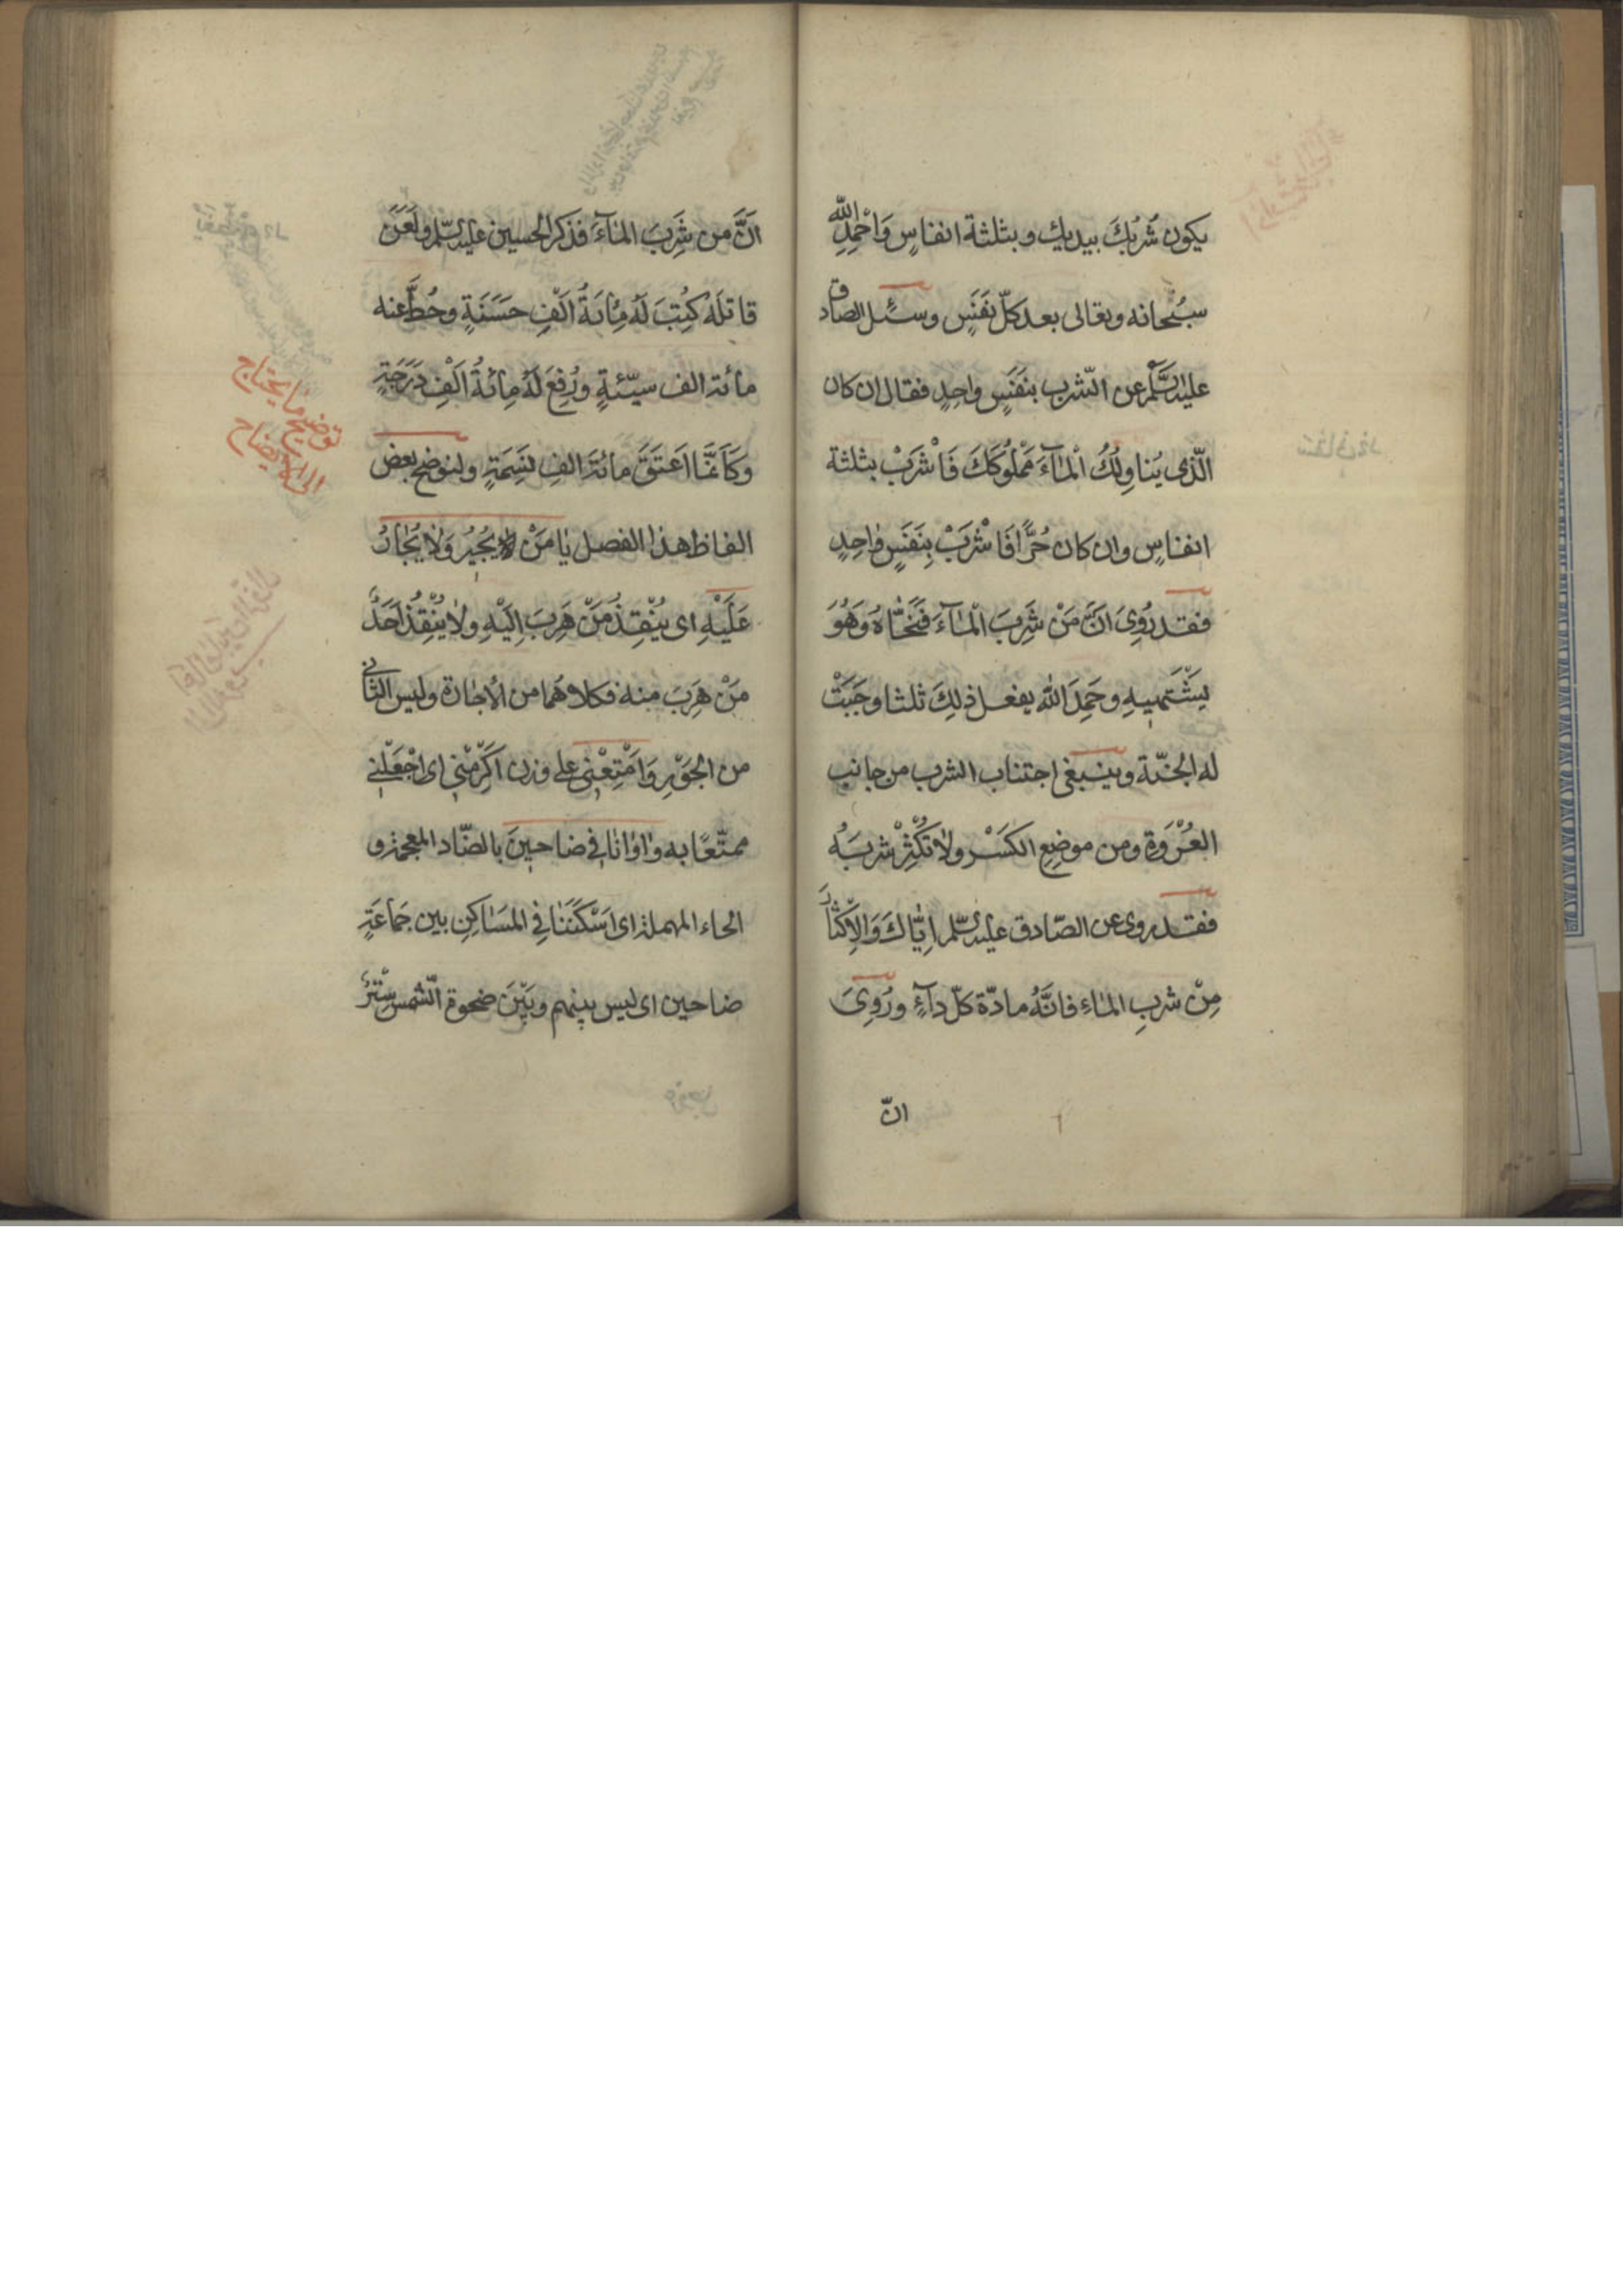 يكون شُربُكَ بيديك وبثلثة انفاسٍ وَاحْمَدِ اللّٰه
سبُحانه وتعالى بعد كلّ نَفَسٍ وسئل الصادق
عليه السّلم عن الشّرب بنَفَسٍ واحِدٍ فقال ان كان
الّذى يُناوِلُكُ الْمٰآءَ مَمْلُوكَكَ فَاشْرَبْ بثلثة
انفاسٍ وان كان حُرًّا فَاشْرَبْ بِنَفَسٍ وٰاحِدٍ
فقد رُوِىَ انَّ مَنْ شَرِبَ الْمٰآءَ فَنَحّٰاهُ وَهُوَ
يَشْتَهيهِ وحَمِدَ اللّٰه يفعل ذلِكَ ثلثا وجَبَتْ
له الجنّة وينبغى اجتناب الشرب من جانب
العُرْوَةِ ومن موضِعِ الكَسْرِ ولاٰ تكْثِرْ شربَهُ
فقد روى عن الصّادق عليه السّلم اِيّٰاكَ وَالاِكْثٰارَ
مِنْ شربِ المٰاءِ فانَّهُ مادّة كلّ دآءٍ ورُوِىَ
انّ
انَّ من شَرِبَ المٰآءَ فذكر الحسين عليه السّلم ولَعَنَ
قاتلَهُ كُتِبَ لَهُ مِأئَةُ اَلْفِ حَسَنَةٍ وحُطَّ عنه
مائة الف سيّئةٍ ورُفِعَ لَهُ مِائَةُ اَلْفِ دَرَجَةٍ
وكَاَنَّمٰا اعتَقَ مائَةَ الفِ نَسِمَةٍ ولنوضح بعض
الفاظ هذا الفصل يٰا مَنْ لا يُجيُر وَلاٰ يُجٰارُ
عَلَيْهِ اى يُنْقِذُ مَنْ هَرِبَ اِلَيْهِ ولاٰ يُنْقِذُ اَحَدٌ
مَنْ هَرِبَ منه فكلاهُما من الأجٰارة وليس الثانى
من الجَوْرِ وَاَمْتِعْنى على وزن اَكْرِمْنى اى اجْعَلْنى
ممتّعًا به وٰاوٰانٰا فى ضاحينَ بالضّاد المعجمة و
الحاء المهملة اى اَسْكَنَنٰا فِى المَسٰاكِنِ بين جَمٰاعَةٍ
ضاحين اى ليس بينهم وبَيْنَ ضحوة الشّمس سِتْرٌ
توضيح ما يحتاج
الى الايضاح